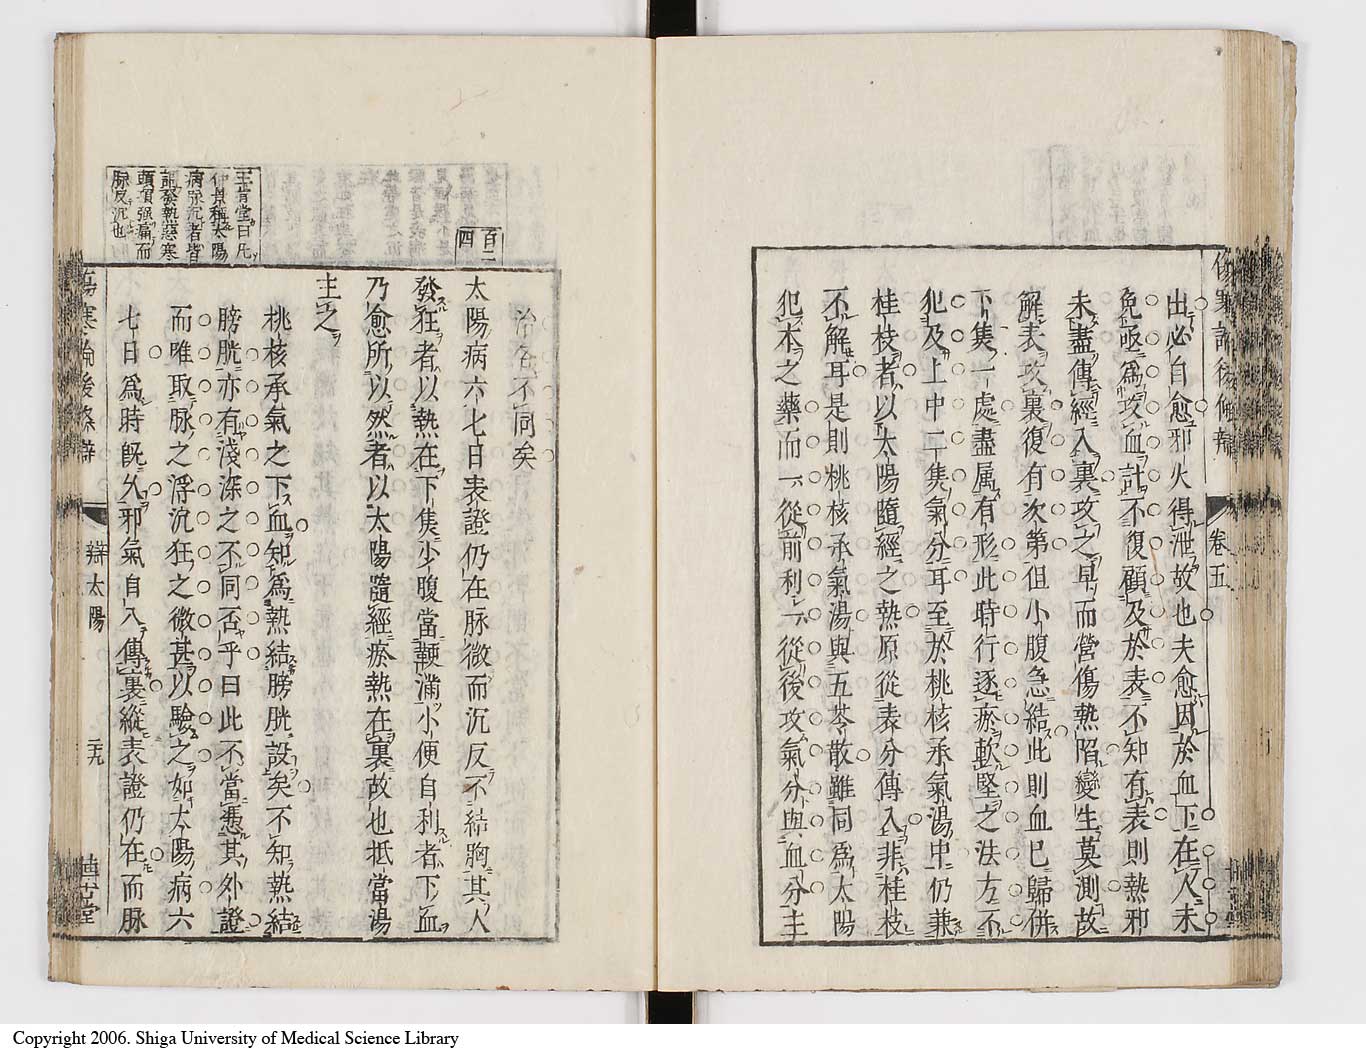 出必自愈邪火得泄故也夫愈因於血下在人未
免亟爲攻血計不復顧及於表不知有表則熱邪
未盡傳經入裏攻之早而營傷熱陷變生莫測故
解表攻裏復有次第但小腹急結此則血已歸併
下焦一處盡属有形此時行逐瘀軟堅之法方不
犯及上中二焦氣分耳至於桃核承氣湯中仍兼
桂枝者以太陽隨經之熱原從表分傳入非桂枝
不解耳是則桃核承氣湯與五苓散雖同爲太陽
犯本之藥而一從前利一從後攻氣分與血分主
卷五
治各不同矣
百二
四
太陽病六七日表證仍在脉微而沉反不結胸其人
發狂者以熱在下焦少腹當鞕滿小便自利者下血
乃愈所以然者以太陽隨經瘀熱在裏故也抵當湯
主之
桃核承氣之下血知爲熱結膀胱設矣不知熱結
膀胱亦有淺深之不同否乎曰此不當憑其外證
而唯取脉之浮沉狂之微甚以驗之如太陽病六
七日爲時既久邪氣自入傳裏縱表證仍在而脉
王肯堂曰凡
仲景稱太陽
病脉沉者皆
謂發熱惡寒
頭項强痛而
脉反沉也
傷寒論後條辯
辯太陽
二九
博古堂
Copyright 2006. Shiga University of Medical Science Library